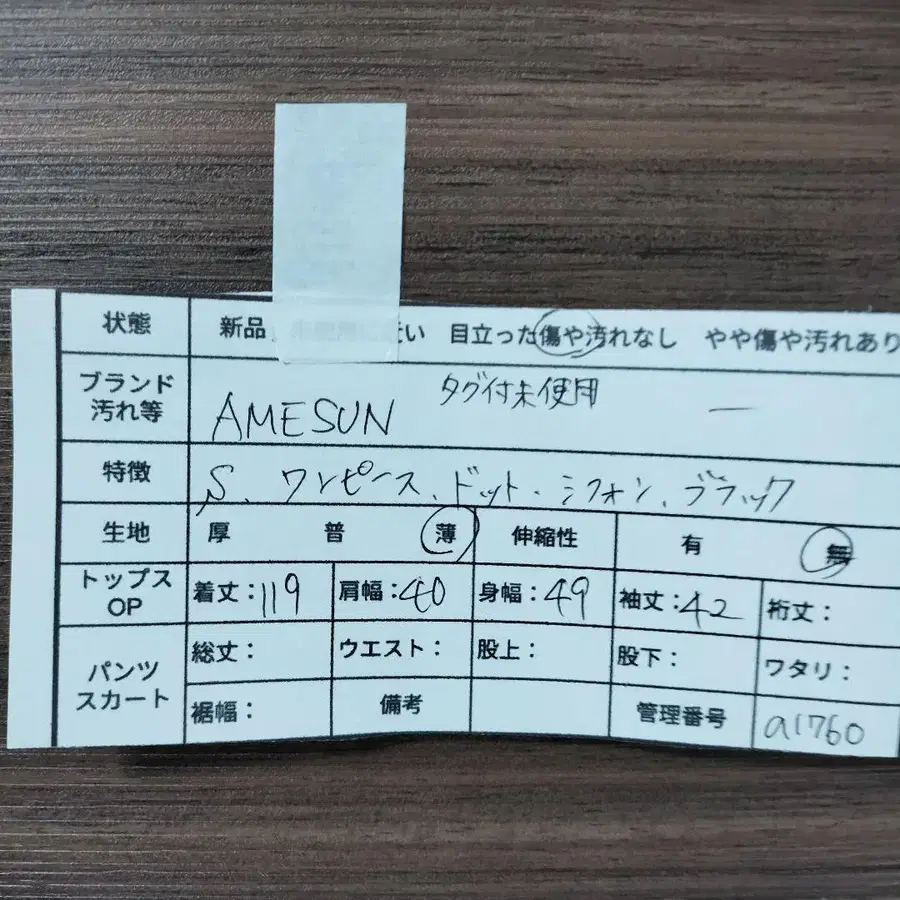 状態 新品 近い 目立った傷や汚れなし やや傷や汚れあり
ブランド 汚れ等 AMESUN タグ付未使用 —
特徴 S、ワンピース、ドット、シフォン、ブラック
生地 厚 普 薄 伸縮性 有 無
トップス OP 着丈:119 肩幅:40 身幅:49 袖丈:42 裄丈:
パンツ スカート 総丈: ウエスト: 股上: 股下: ワタリ:
裾幅: 備考 管理番号 a1760